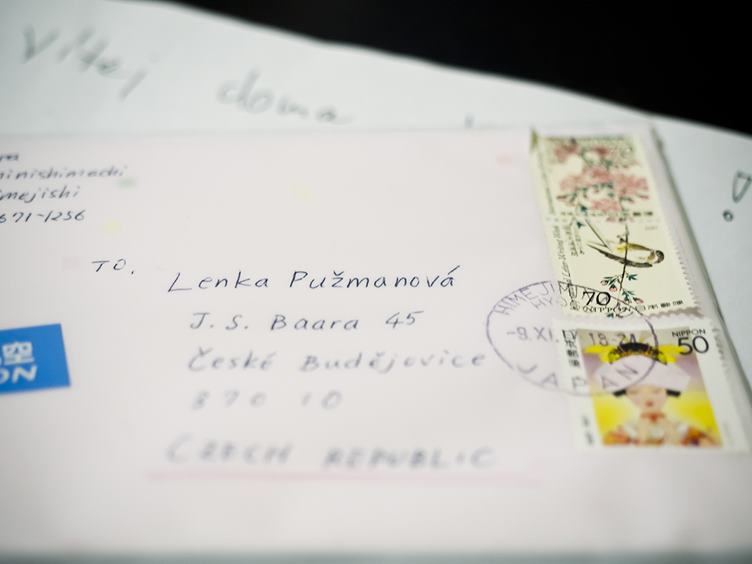 Vítej doma
!
inishimachi
mejishi
671-1256
TO.
Lenka Pužmanová
J. S. Baara 45
České Budějovice
370 10
CZECH REPUBLIC
空
ON
70
NIPPON
HIMEJI
HY
-9.XI.
18-24
JAPAN
NIPPON
50